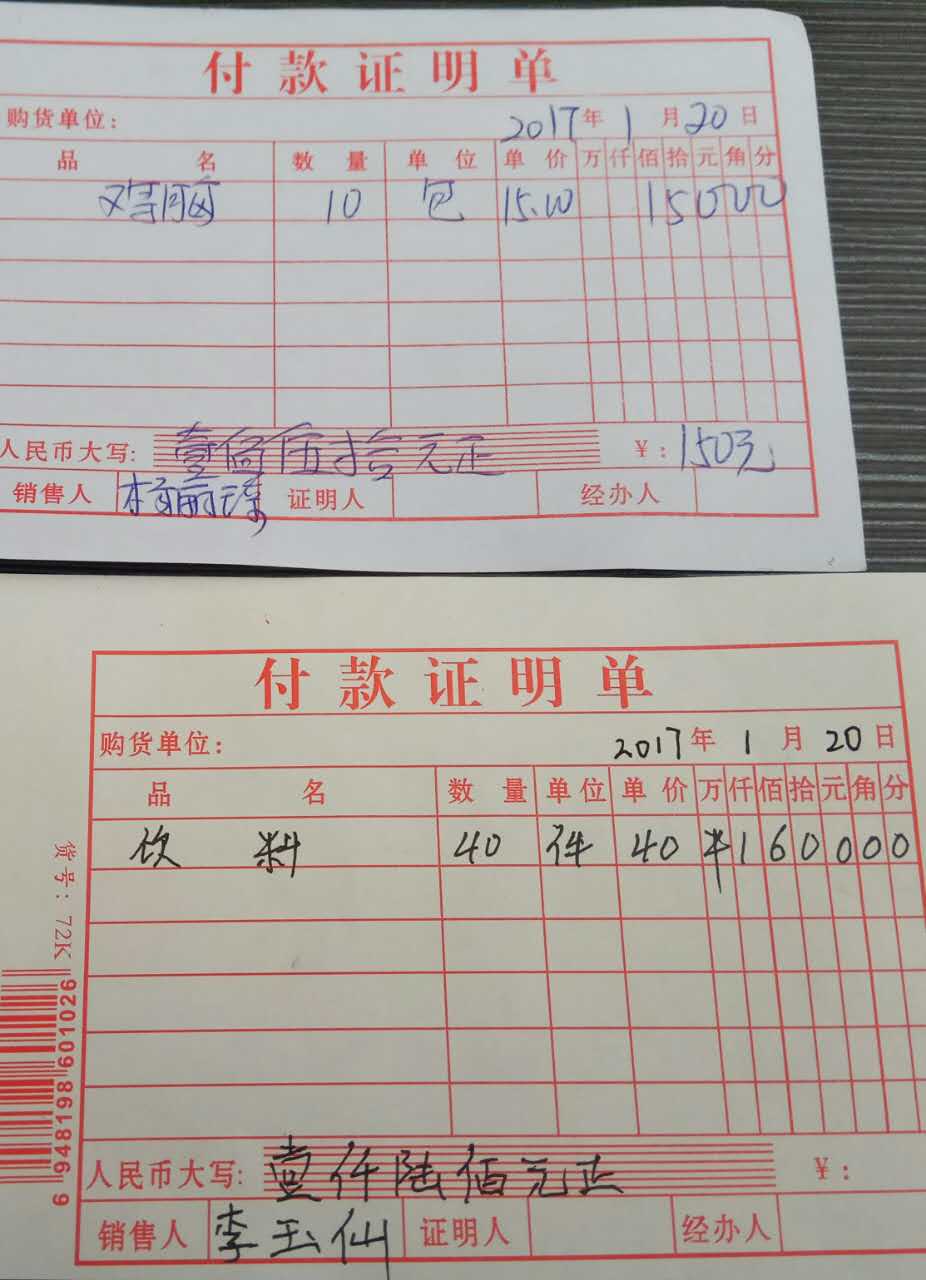 付款证明单
购货单位: 2017年1月20日
品名 数量 单位 单价 万仟佰拾元角分
10 包 15.00 15000
人民币大写: 壹佰伍拾元正 ¥: 150元
销售人 杨丽 证明人 经办人
付款证明单
购货单位: 2017年1月20日
品名 数量 单位 单价 万仟佰拾元角分
饮料 40 件 40 ¥160000
人民币大写: 壹仟陆佰元正 ¥:
销售人 李玉仙 证明人 经办人
货号: 72K
6 948198 601026